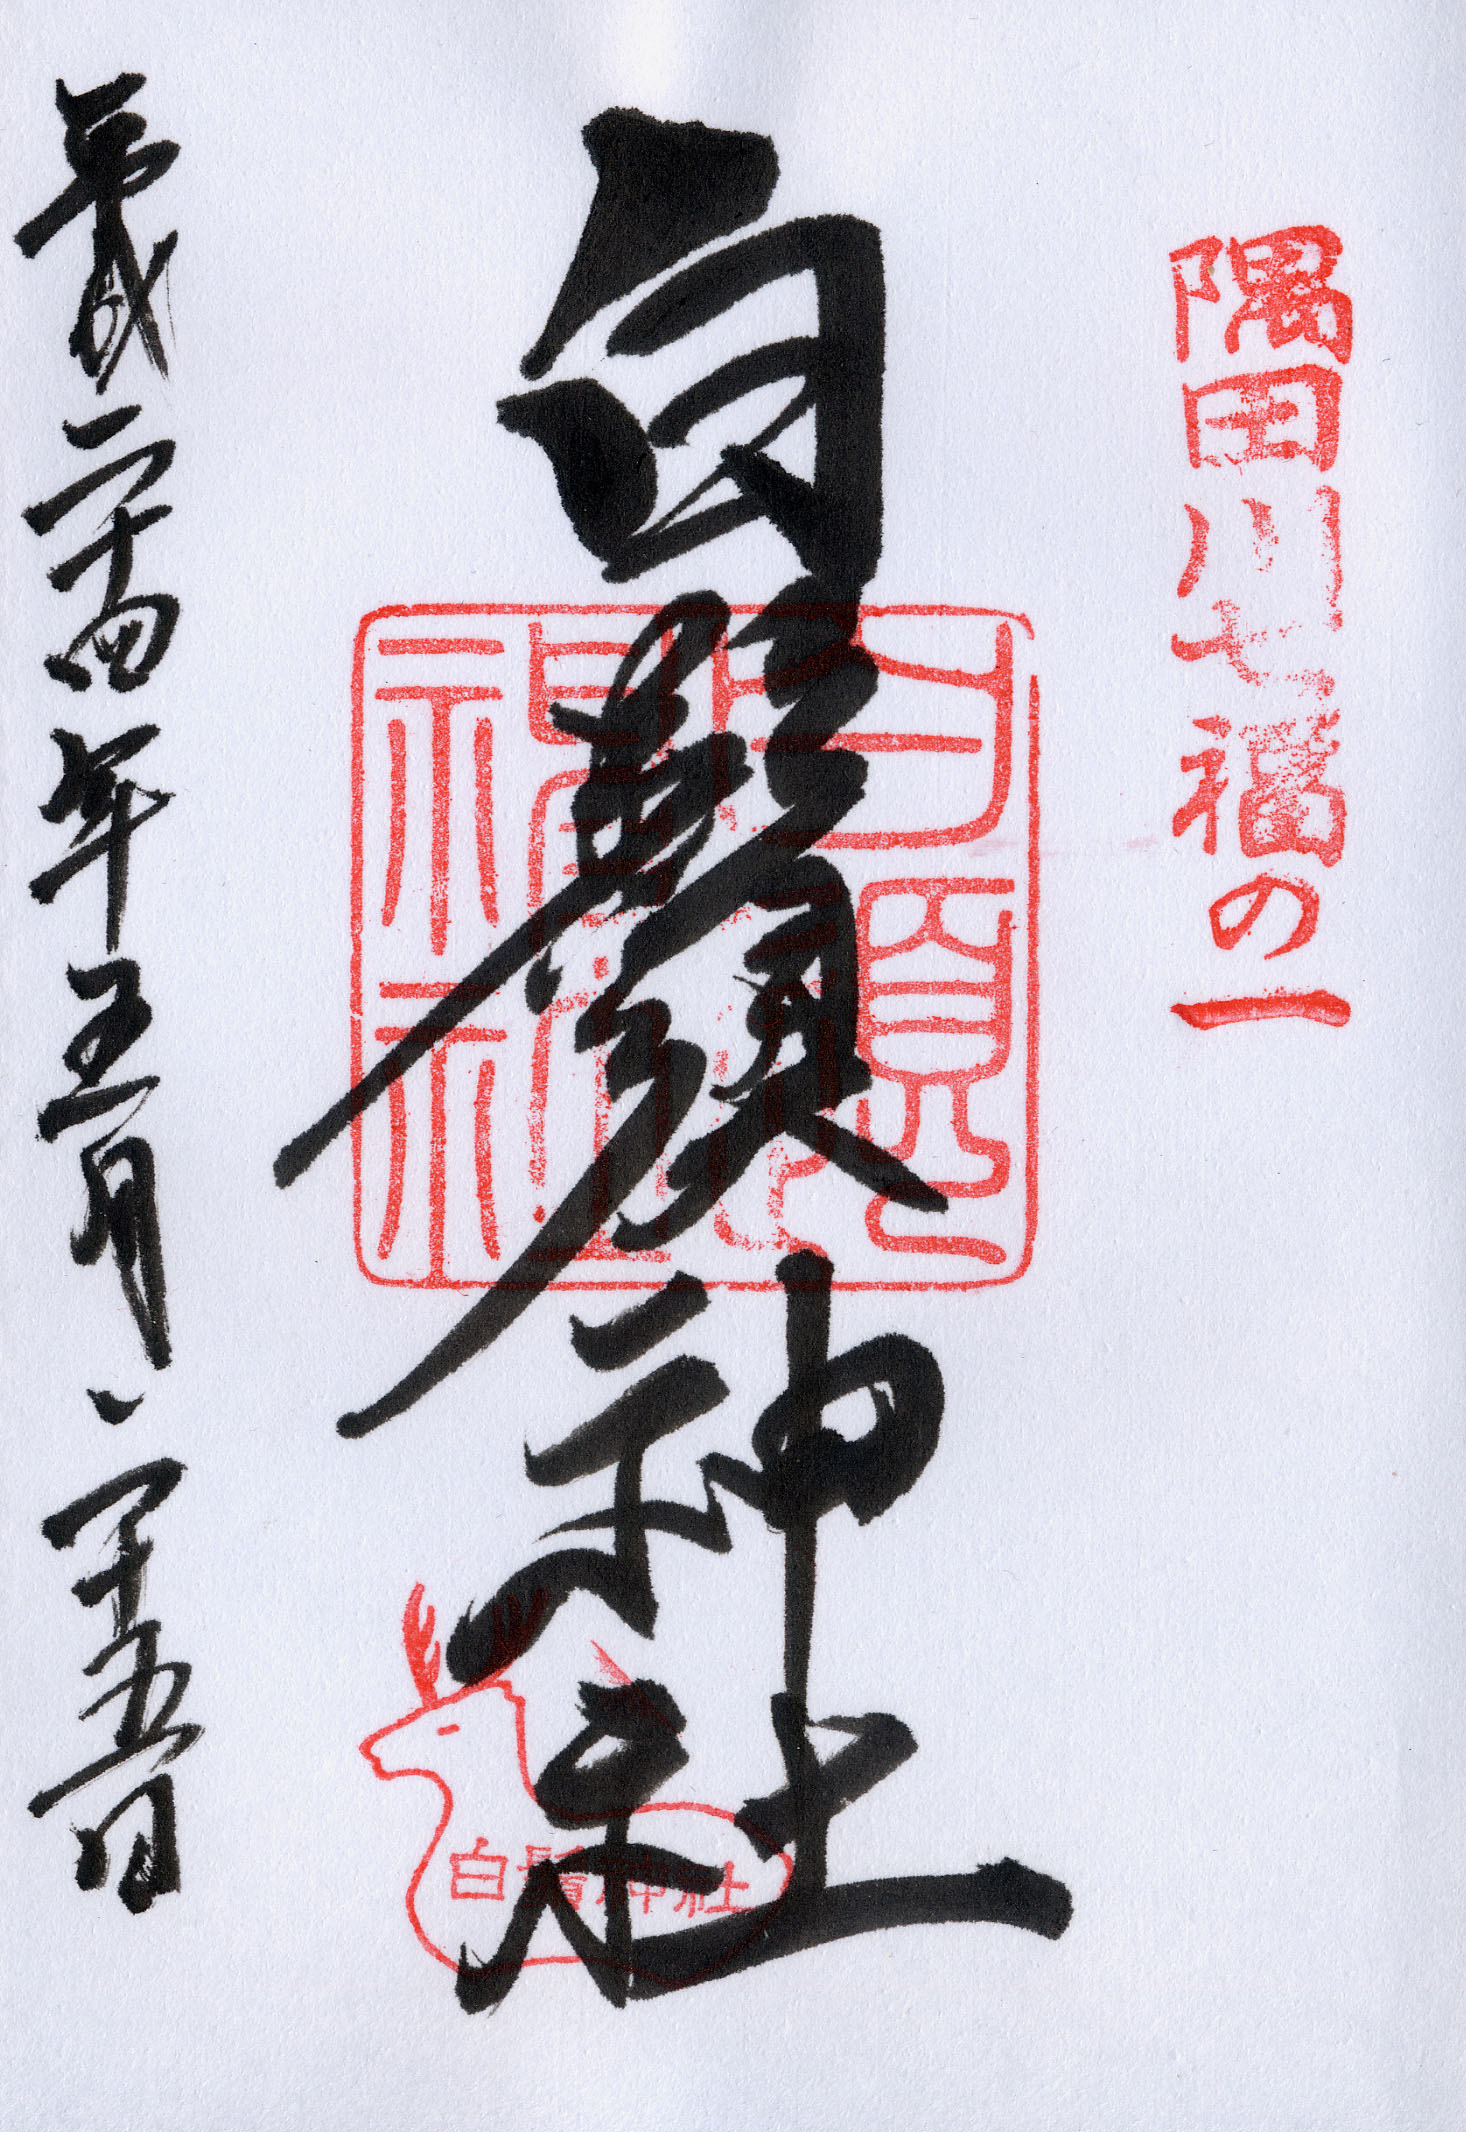 隅田川七福の一
白鬚神社
白鬚神社
白鬚神社
平成二十四年五月二十五日